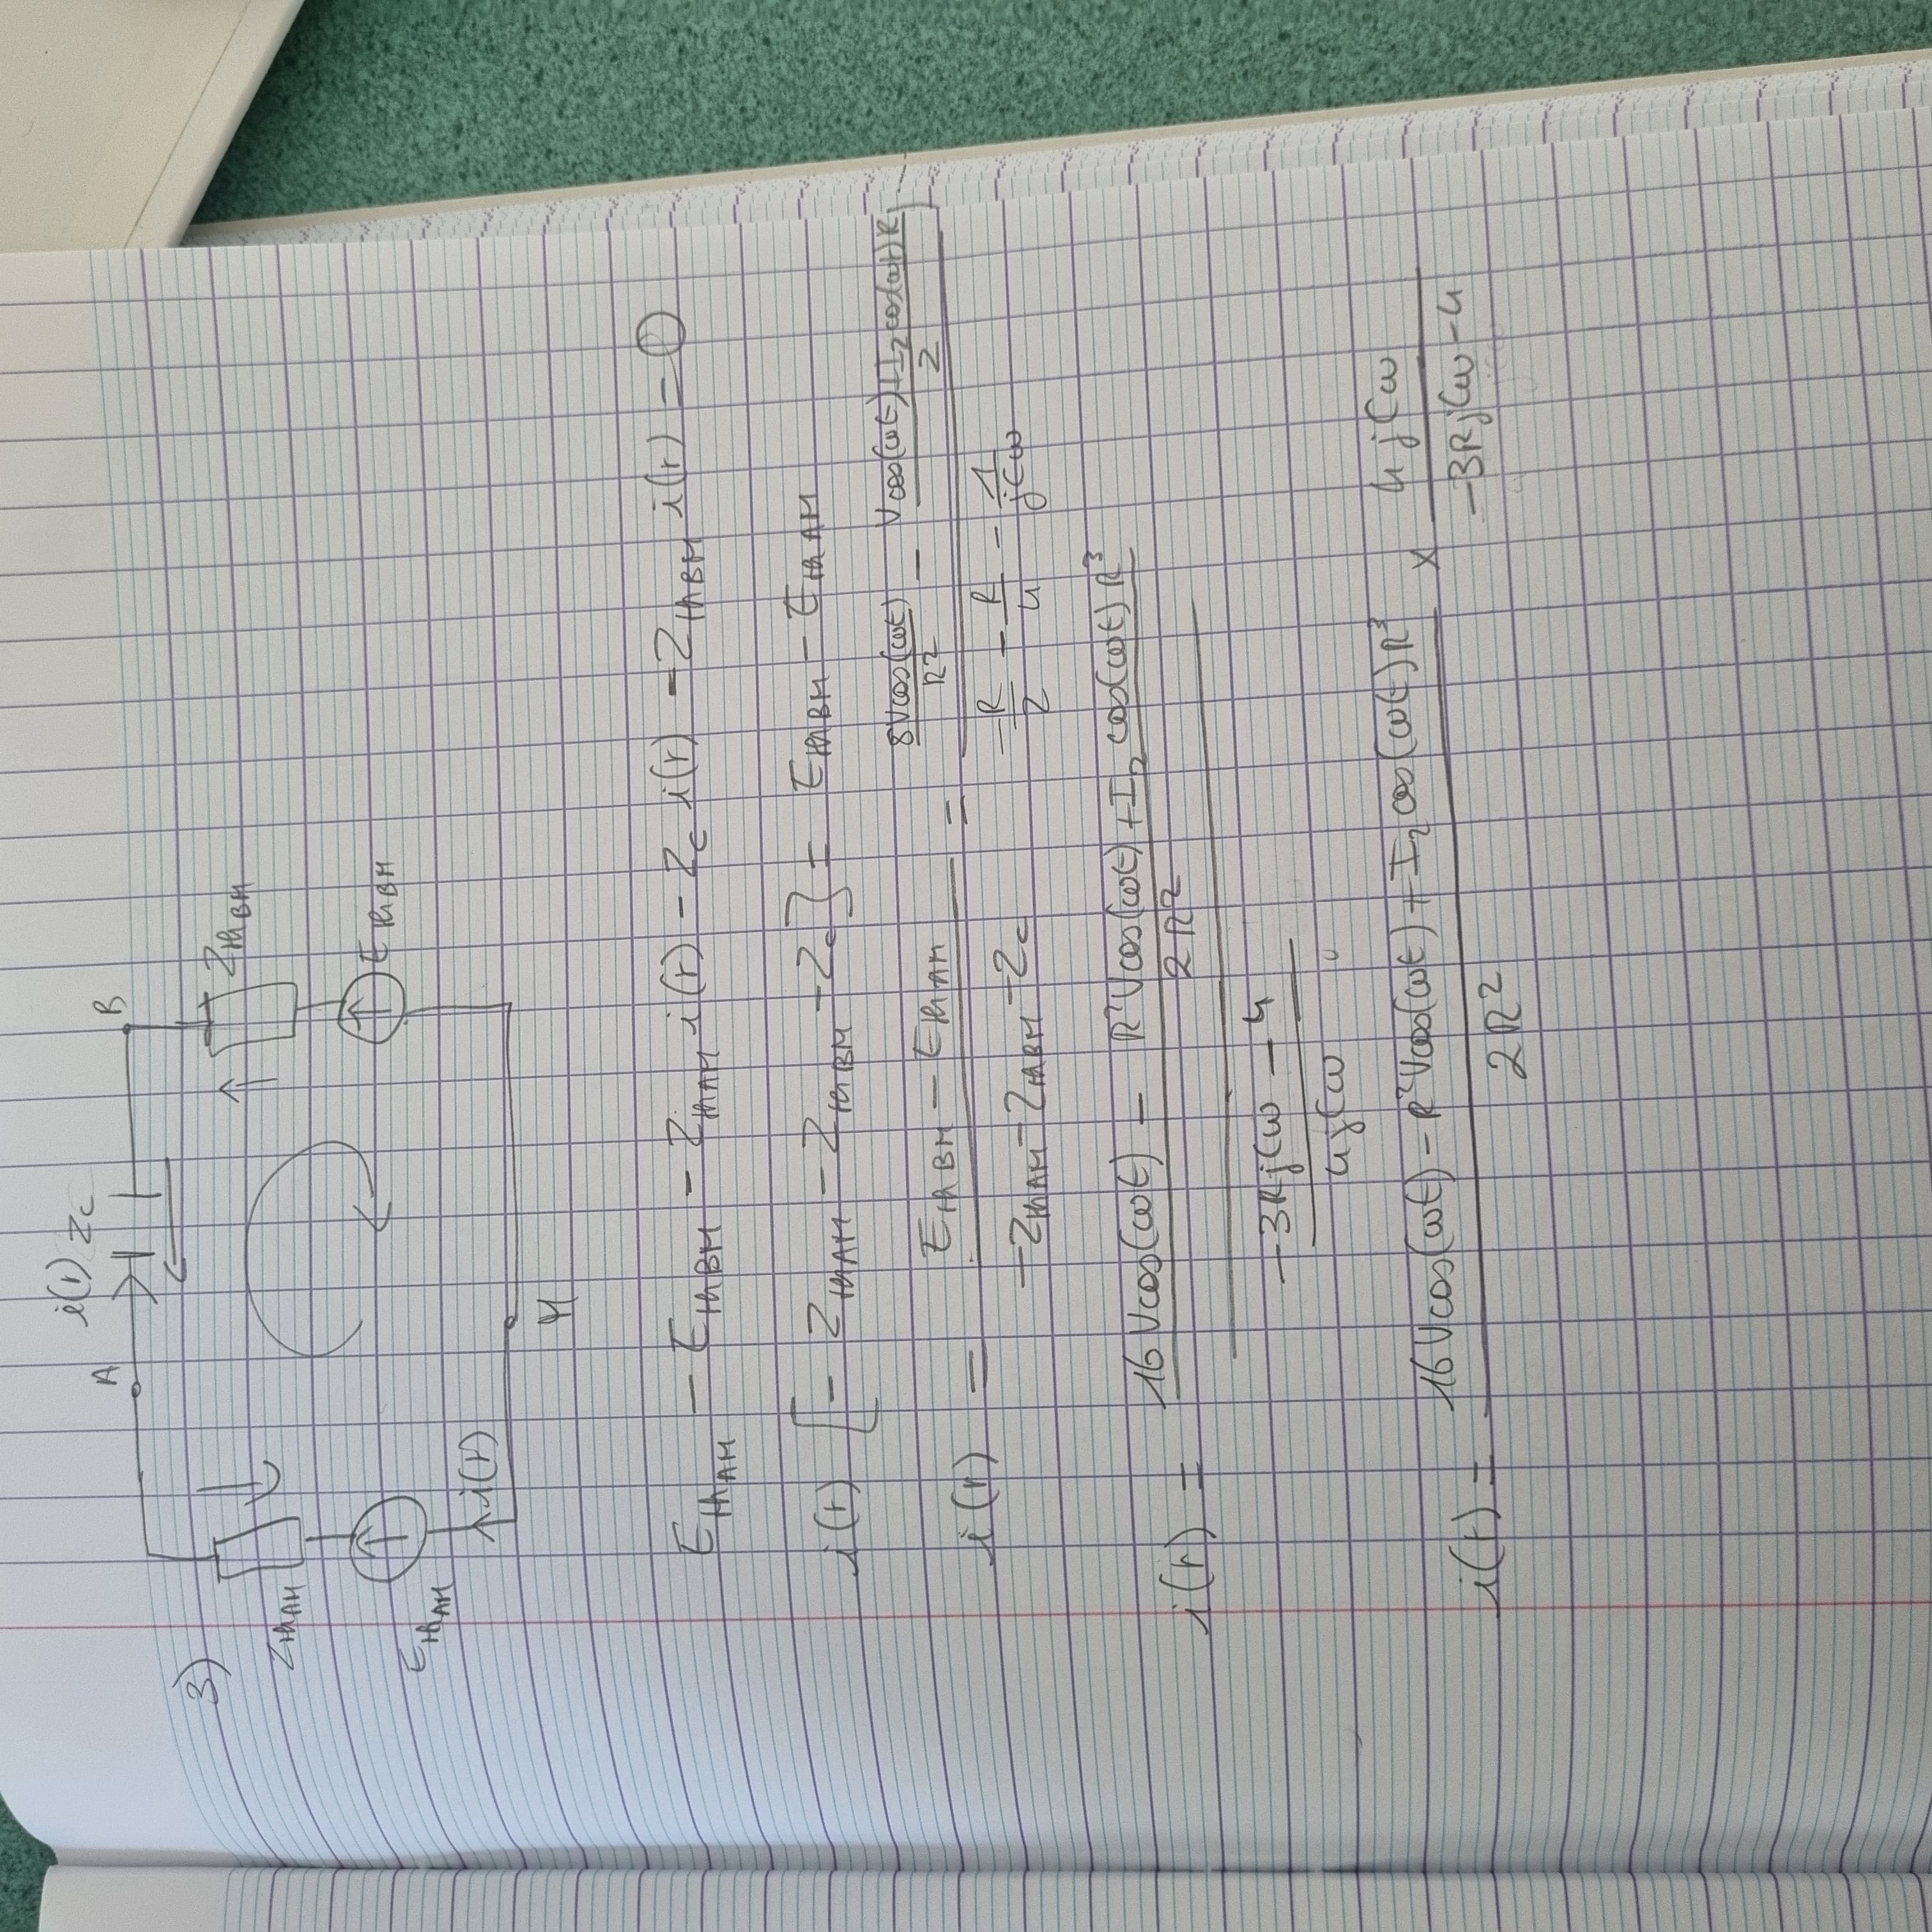 3)
A i(t) Zc B
ZthAM ZthBM
EthAM EthBM
i(t)
M
EthAM - EthBM - ZthAM i(t) - Zc i(t) - ZthBM i(t) = 0
i(t) [- ZthAM - ZthBM - Zc] = EthBM - EthAM
i(t) = (EthBM - EthAM) / (-ZthAM - ZthBM - Zc) = (8Vcos(ωt)/R² - (Vcos(ωt)+I₂cos(ωt)R)/2) / (-R/2 - R/4 - 1/jCω)
i(t) = ((16Vcos(ωt) - R²Vcos(ωt)+I₂cos(ωt)R³) / 2R²) / ((-3RjCω - 4) / 4jCω)
i(t) = (16Vcos(ωt) - R²Vcos(ωt)+I₂cos(ωt)R³) / 2R² × 4jCω / (-3RjCω-4)